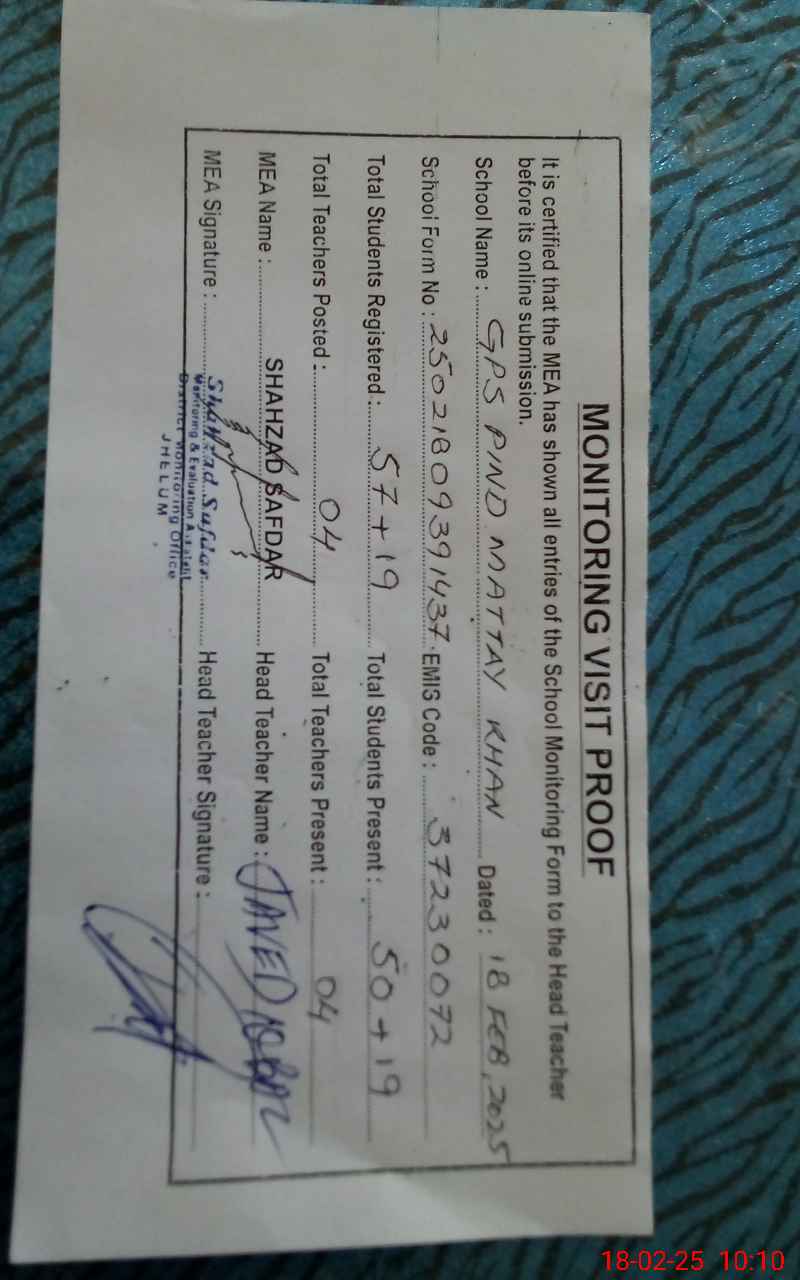 MONITORING VISIT PROOF
It is certified that the MEA has shown all entries of the School Monitoring Form to the Head Teacher
before its online submission.
School Name : GPS PIND MATTAY KHAN Dated : 18 FEB, 2025
School Form No : 25021809391437 EMIS Code : 37230072
Total Students Registered : 57+19 Total Students Present : 50+19
Total Teachers Posted : 04 Total Teachers Present : 04
MEA Name : SHAHZAD SAFDAR Head Teacher Name : JAVED
MEA Signature : Head Teacher Signature :
Shahzad Safdar
Monitoring & Evaluation Assistant
District Monitoring Office
JHELUM
18-02-25 10:10